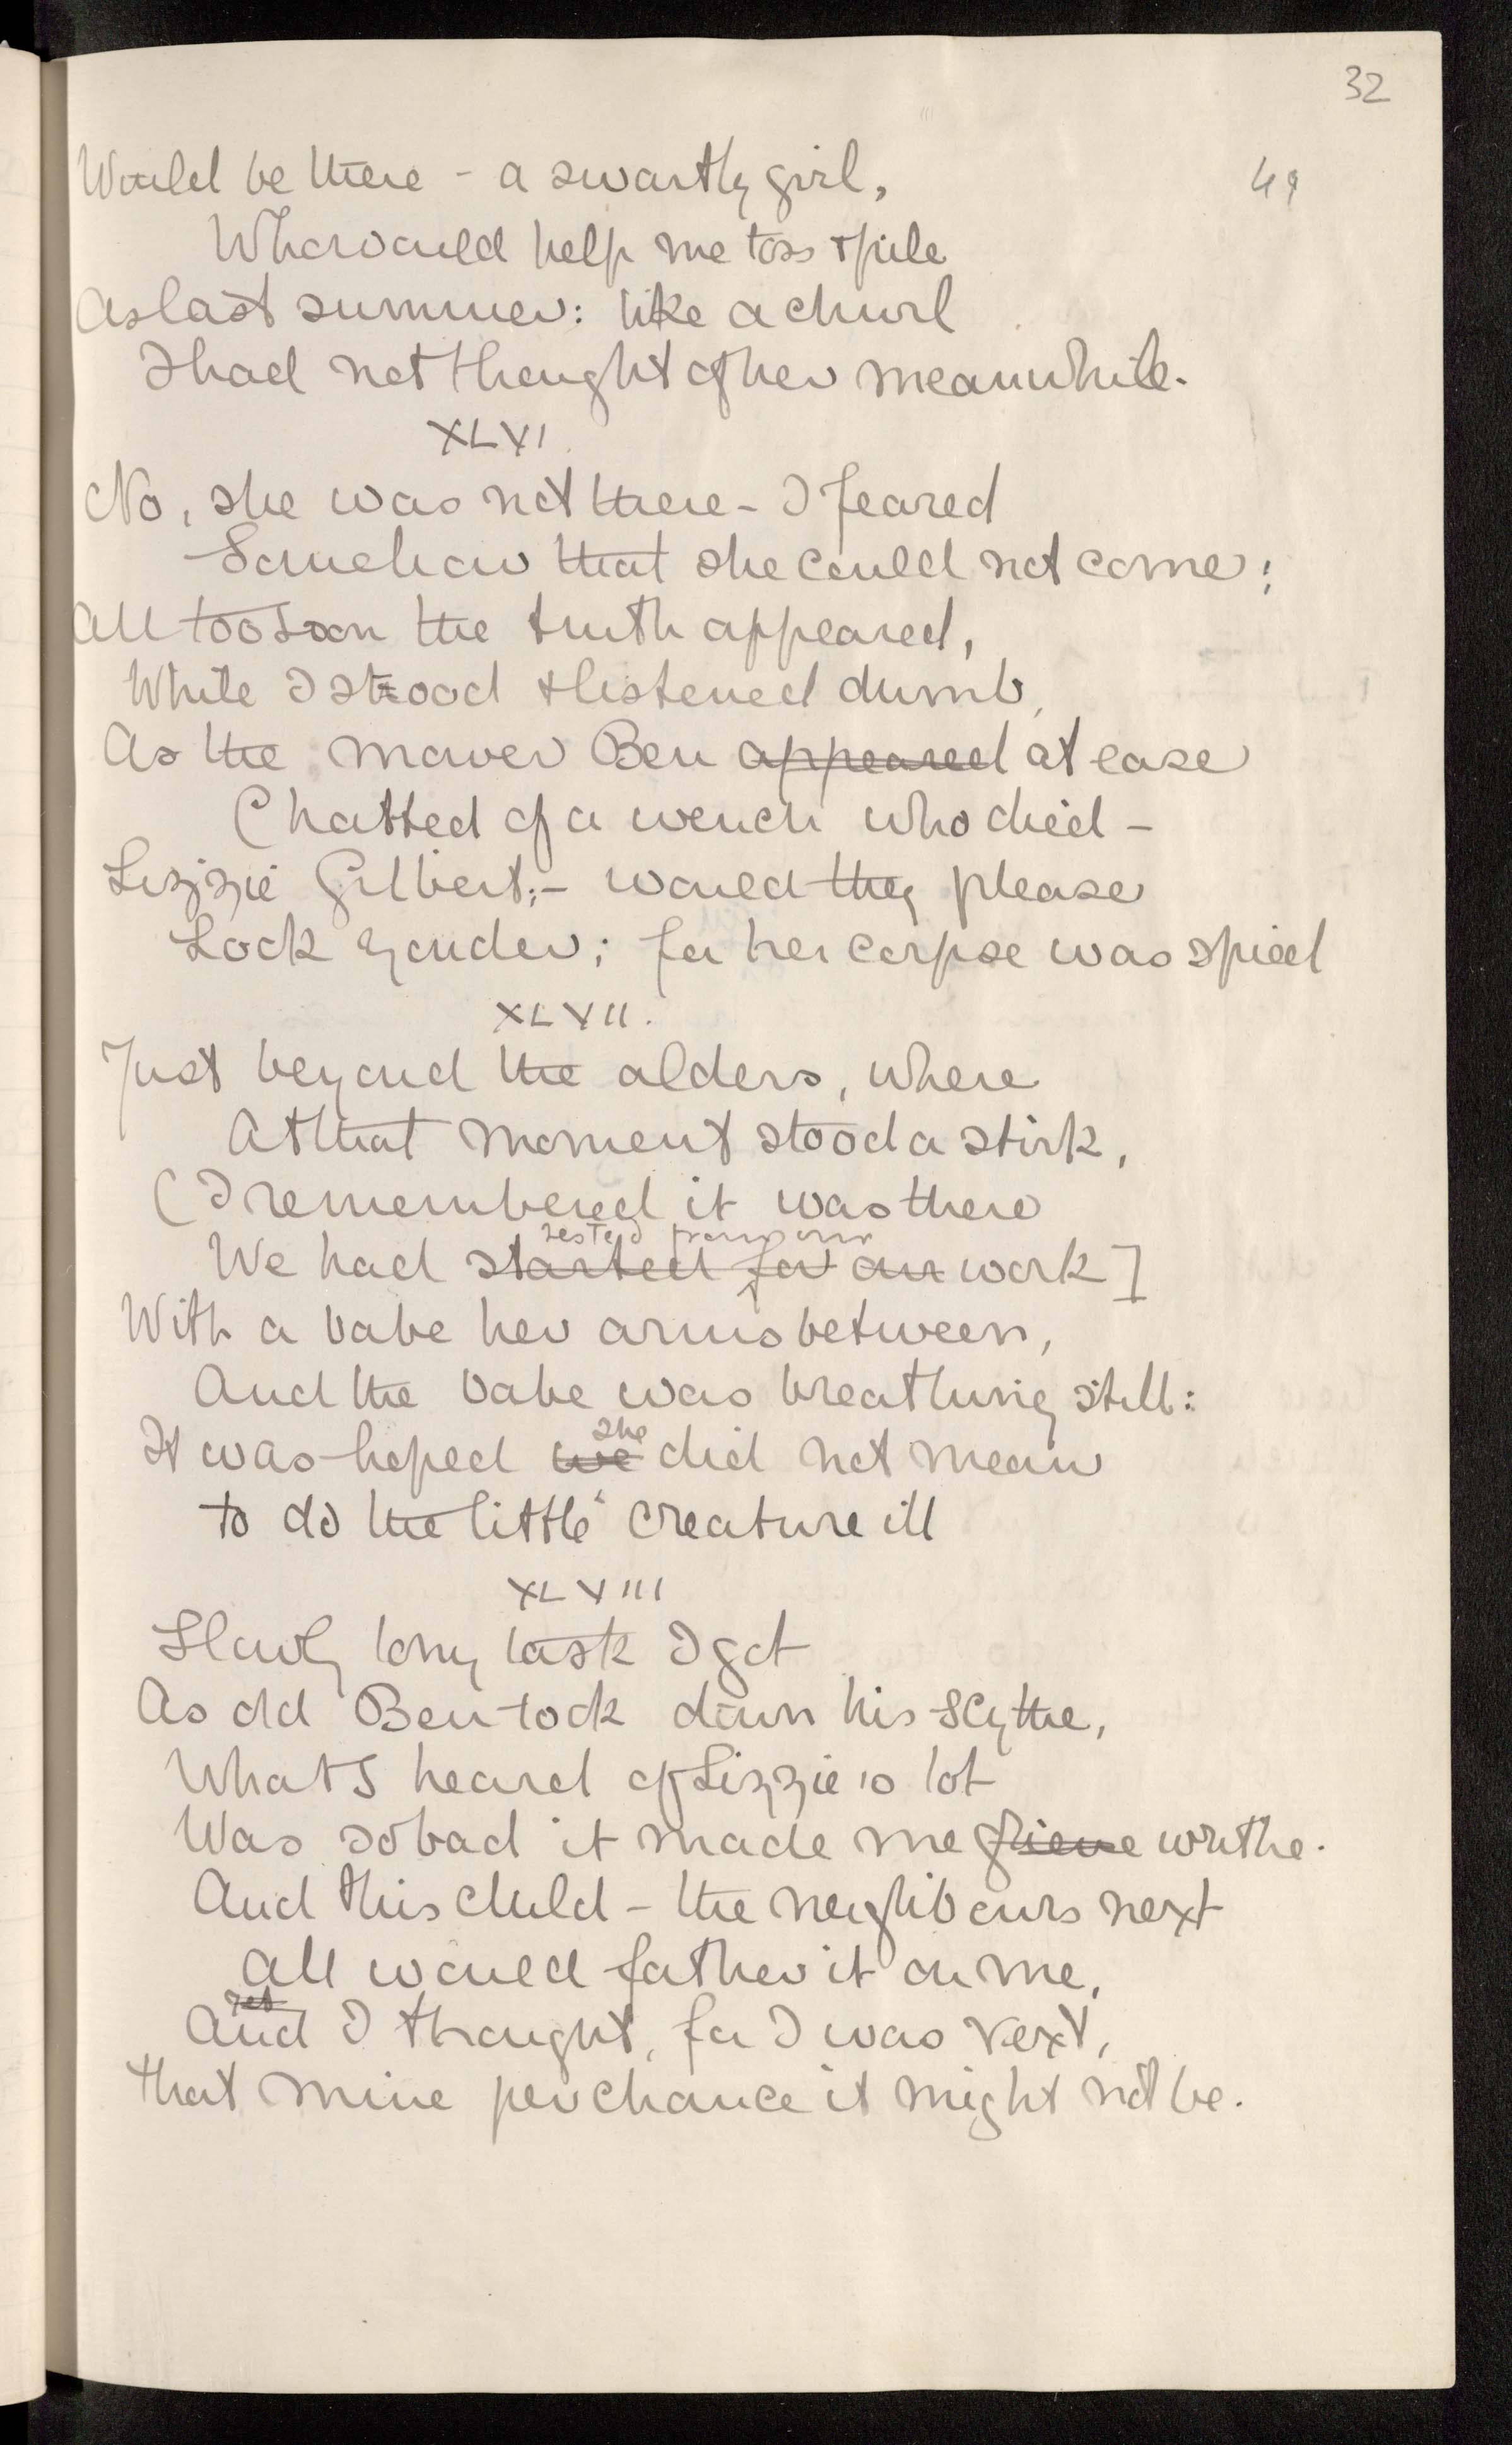 32
Would be there - a swarthy girl,
49
Who would help me toss & pile
As last summer: like a churl
I had not thought of her meanwhile.
XLVI.
No, she was not there - I feared
Somehow that she could not come;
All too soon the truth appeared,
While I stood & listened dumb,
As the mower Ben appeared at ease
Chatted of a wench who died -
Lizzie Gilbert; - would they please
Look yonder; for her corpse was spied
XLVII.
Just beyond the alders, where
At that moment stood a stirk,
(I remembered it was there
rested from our
We had started for our work]
With a babe her arms between,
And the babe was breathing still:
she
It was hoped we did not mean
to do the little creature ill
XLVIII
Slowly to my task I got
As old Ben took down his scythe,
What I heard of Lizzie's lot
Was so bad it made me grieve writhe.
And this child - the neighbours next
All would father it on me,
yet
And I thought, for I was vext,
that mine perchance it might not be.